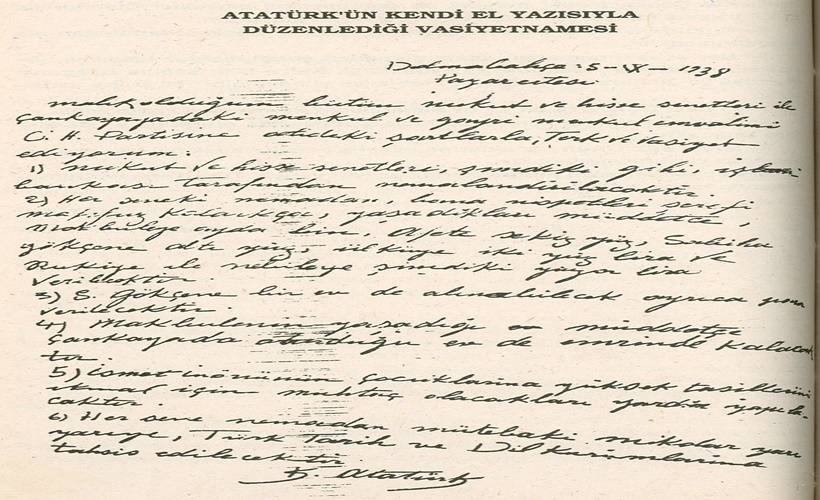 ATATÜRK'ÜN KENDİ EL YAZISIYLA
DÜZENLEDİĞİ VASİYETNAMESİ
Dolmabahçe : 5-IX-1938
Pazarertesi
Malik olduğum bütün nukut ve hisse senetleri ile
Çankayadaki menkul ve gayri menkul emvalimi
C. H. Partisine atideki şartlarla, terk ve vasiyet
ediyorum:
1) Nukut ve hisse senetleri, şimdiki gibi, iş
bankası tarafından nemalandırılacaktır.
2) Her seneki nemadan, bana nispetleri şerefi
mahfuz kaldıkça, yaşadıkları müddetçe,
Makbuleye ayda bin, Afete sekiz yüz, Sabiha
gökçene altı yüz, ülküye iki yüz lira ve
Rukiye ile nebileye şimdiki yüzer lira
verilecektir.
3) S. Gökçene bir ev de alınabilecek ayrıca para
verilecektir.
4) Makbulenin yaşadığı müddetçe
Çankayada oturduğu ev de emrinde kalacak
tır.
5) ismet inönünün çocuklarına yüksek tahsillerini
ikmal için muhtaç olacakları yardım yapıla-
caktır.
6) Her sene nemadan mütebaki miktar yarı
yarıya, Türk Tarih ve Dil Kurumlarına
tahsis edilecektir.
K. Atatürk